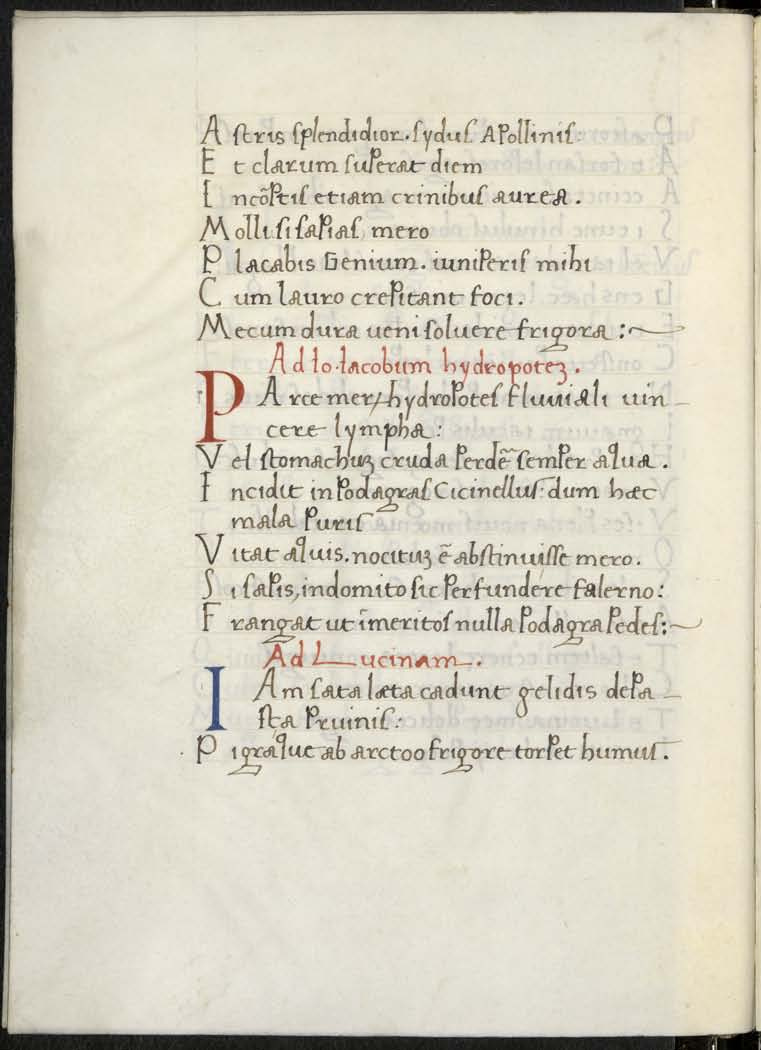 Astris splendidior. sydus Apollinis:
Et clarum superat diem
Incõptis etiam crinibus aurea.
Molli si sapias, mero
Placabis Genium. iuniperis mihi
Cum lauro crepitant foci.
Mecum dura ueni soluere frigora:~
Ad Io. Iacobum hydropotez.
PArce mer, hydropotes fluuiali uin-
cere lympha:
Vel stomachuz cruda perdẽ semper aqua.
Incidit in podagras Cicinellus: dum hæc
mala puris
Vitat aquis. nocituz ẽ abstinuisse mero.
Si sapis, indomito sic perfundere falerno:
Frangat ut ĩmeritos nulla podagra pedes:~
Ad Lucinam.
IAm sata læta cadunt gelidis depa-
sta pruinis:
Pigraque ab arctoo frigore torpet humus.